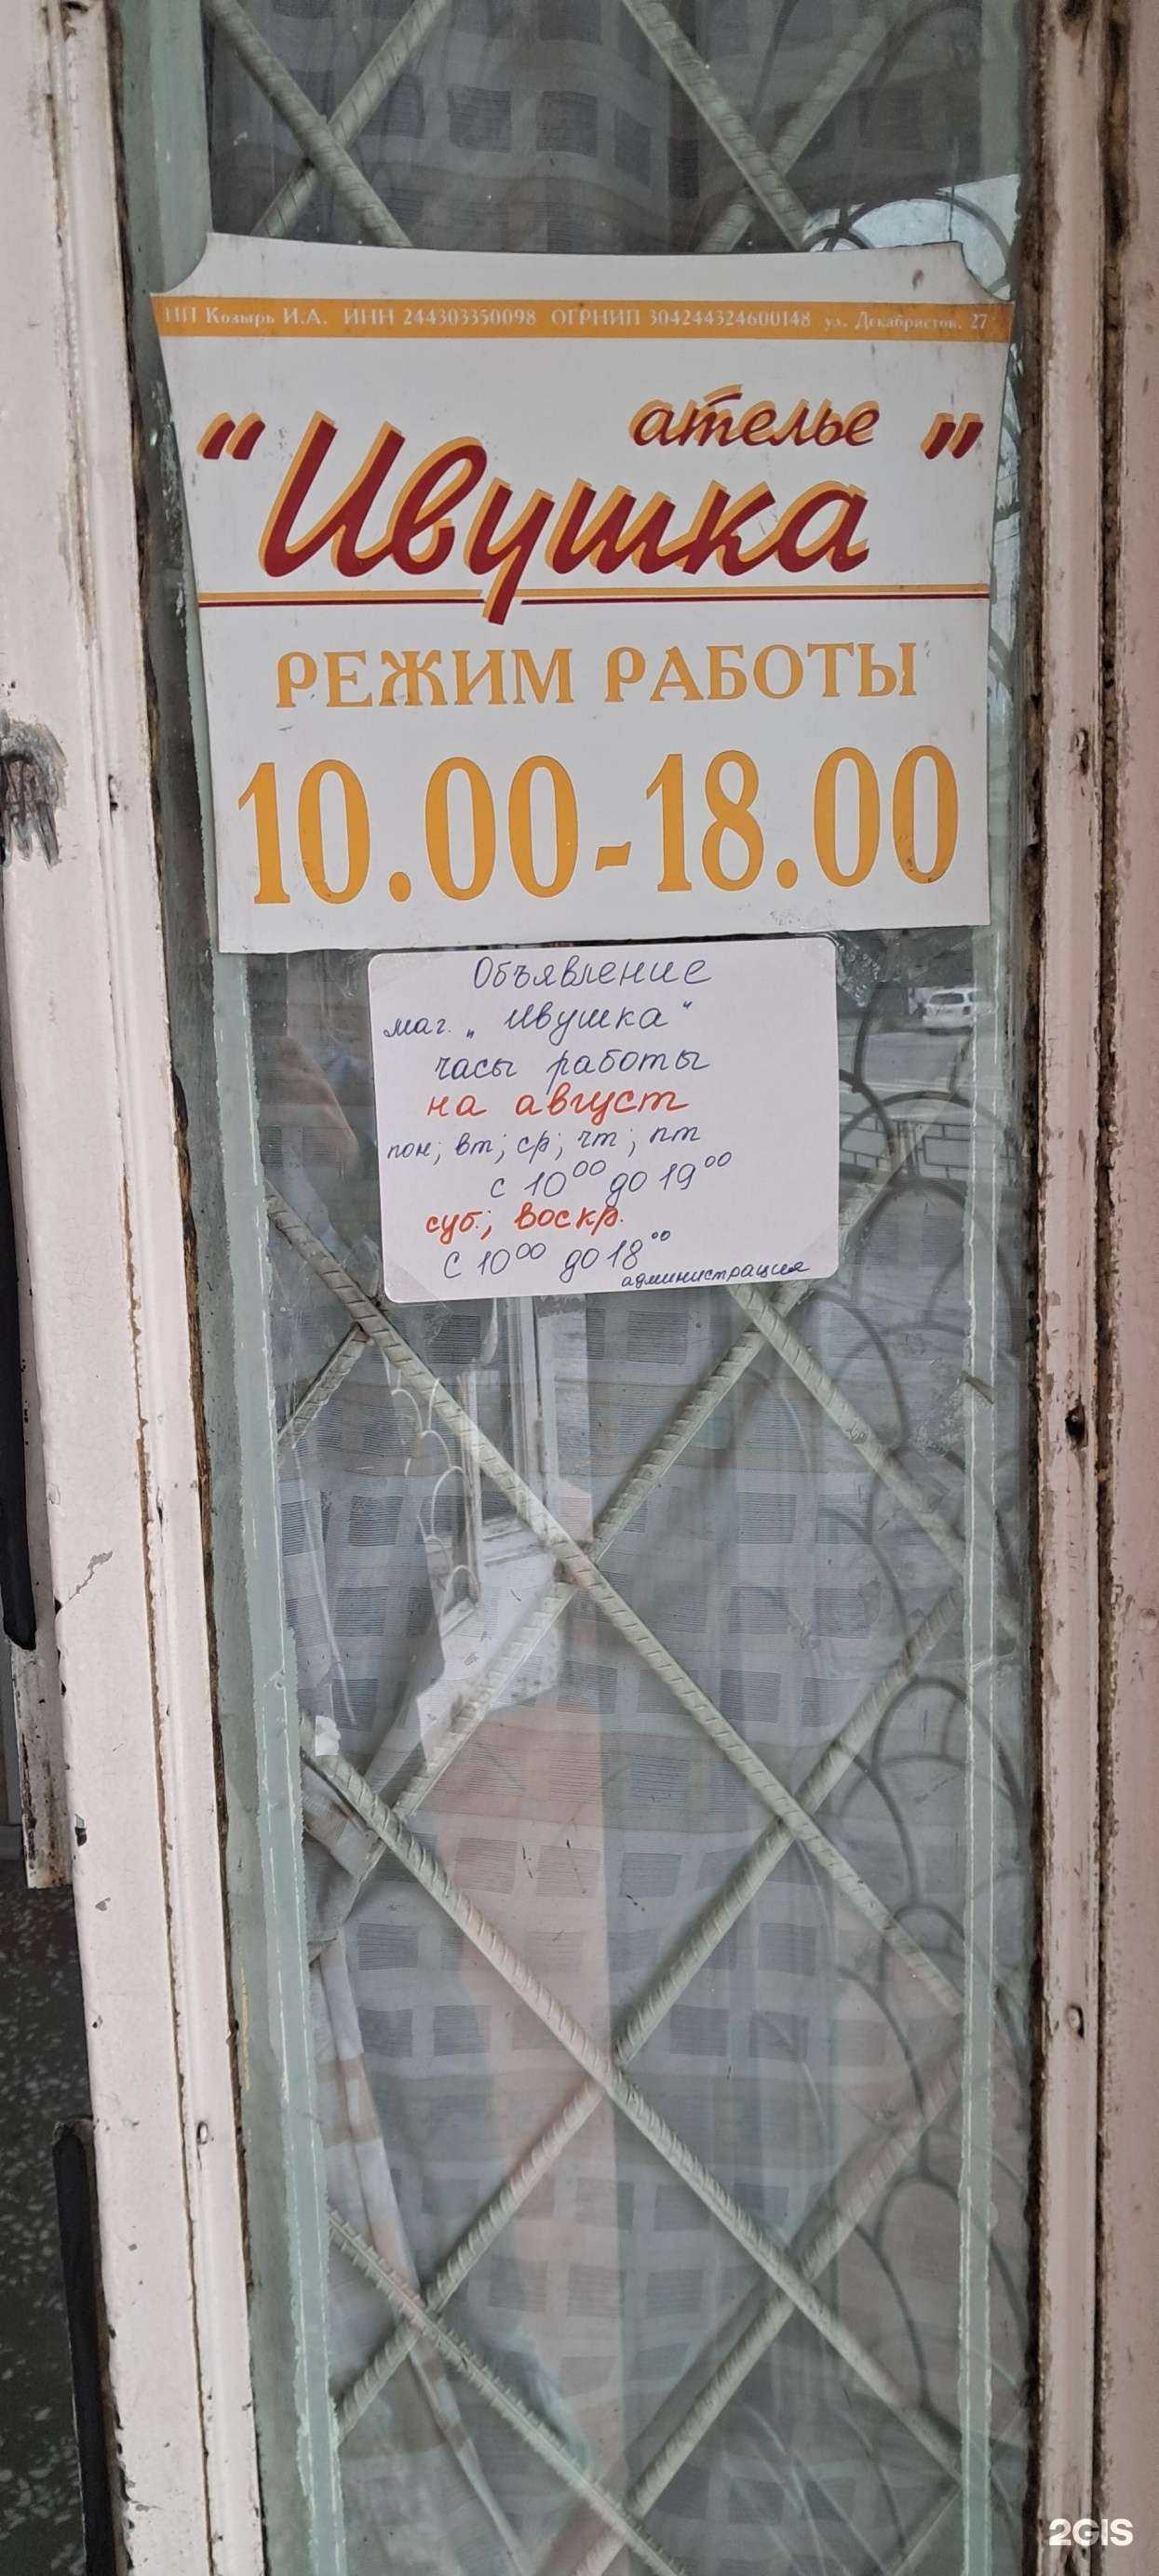 ИП Козырь И.А. ИНН 244303350098 ОГРНИП 304244324600148 ул. Декабристов, 27
ателье
"Ивушка"
РЕЖИМ РАБОТЫ
10.00-18.00
Объявление
маг. „Ивушка"
часы работы
на август
пон; вт; ср; чт; пт
с 10⁰⁰ до 19⁰⁰
суб.; воскр.
с 10⁰⁰ до 18⁰⁰
администрация
2GIS